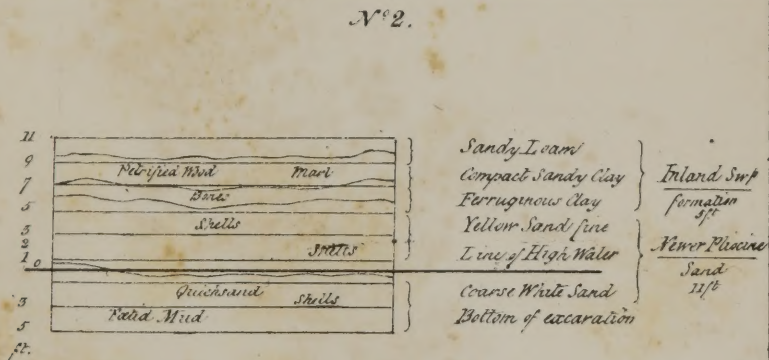 Nº 2.
11
9
7
5
3
2
1 0
3
5
ft.
Petrified Wood Marl
Bones
Shells
Shells
Quicksand Shells
Fœtid Mud
Sandy Loam
Compact Sandy Clay
Ferruginous Clay
Yellow Sand fine
Line of High Water
Coarse White Sand
Bottom of excavation
Inland Swp
formation
5ft
Newer Pliocine
Sand
11ft